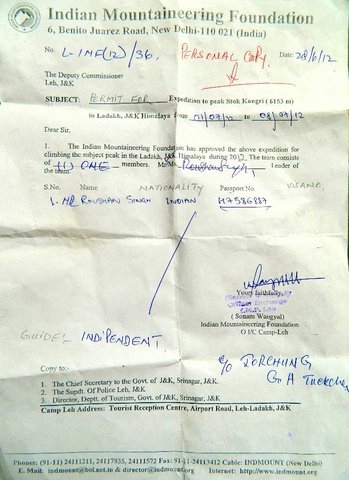 Indian Mountaineering Foundation
6, Benito Juarez Road, New Delhi-110 021 (India)
No. L-IMF(12)/36. PERSONAL COPY Date: 28/6/12
The Deputy Commissioner
Leh, J&K
SUBJECT: PERMIT FOR Expedition to peak Stok Kangri (6153 m)
in Ladakh, J&K Himalaya from 01/07/12 to 08/07/12
Dear Sir,
1. The Indian Mountaineering Foundation has approved the above expedition for
climbing the subject peak in the Ladakh, J&K Himalaya during 2012. The team consists
of (1) ONE members. Mr/Ms. Leader of
the team.
S.No. Name NATIONALITY Passport No.
1. MR ROUSHAN SINGH INDIAN H7586887
Yours faithfully,
(Sonam Wangyal)
Indian Mountaineering Foundation
O I/C Camp-Leh
GUIDE: INDIPENDENT
Copy to:-
C/o
1. The Chief Secretary to the Govt. of J&K, Srinagar, J&K
2. The Supdt. Of Police Leh, J&K
3. Director, Deptt. of Tourism, Govt. of J&K, Srinagar, J&K
Camp Leh Address: Tourist Reception Centre, Airport Road, Leh-Ladakh, J&K
Phones: (91-11) 24111211, 24117935, 24111572 Fax: 91-11-24113412 Cable: INDMOUNT (New Delhi)
E. Mail: indmount@bol.net.in & director@indmount.org Internet: http://www.indmount.org